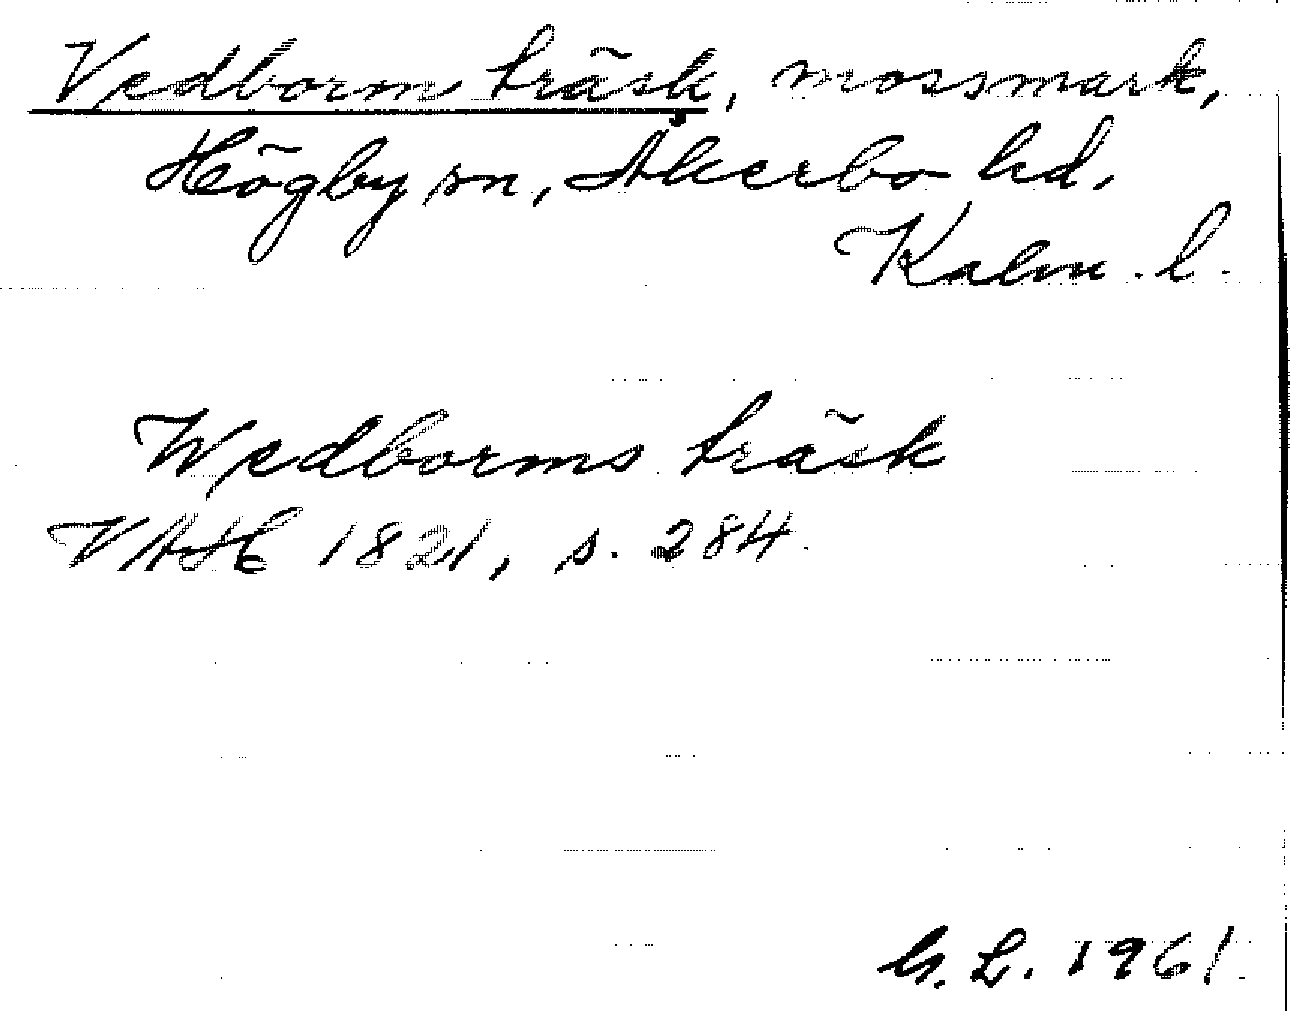 Vedborm träsk, mossmark,
Högby sn, Åkerbo hd,
Kalm. l.
Wedborms träsk
VAH 1821, s. 284.
G. L. 1961.